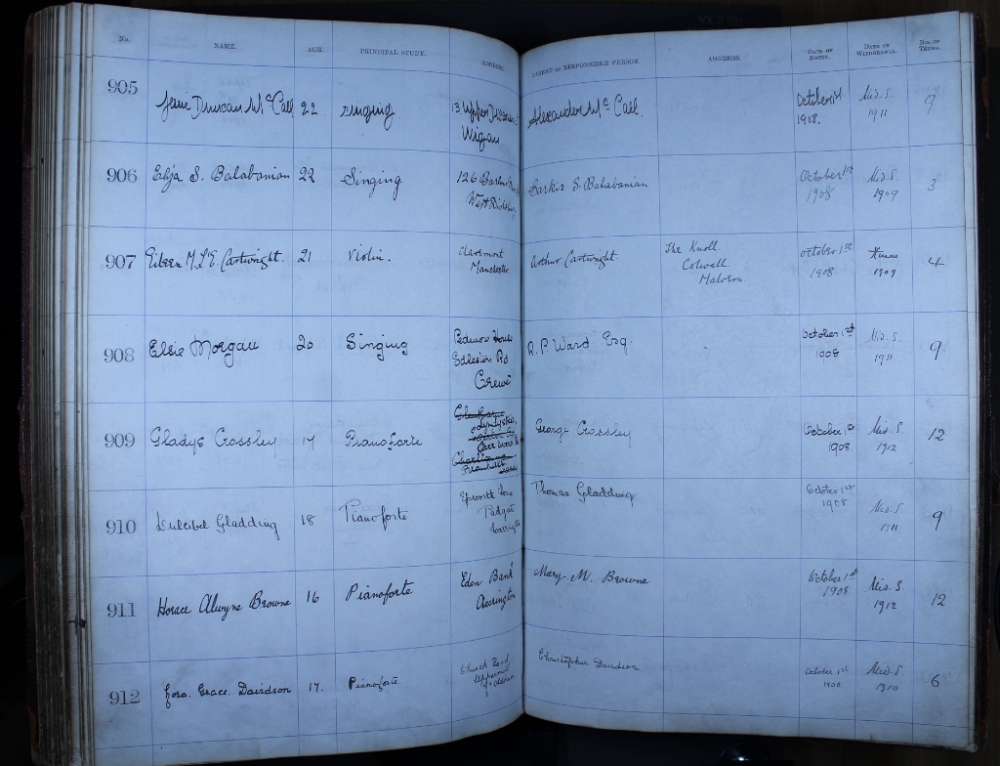 No. NAME. AGE. PRINCIPAL STUDY. ADDRESS. PARENT or RESPONSIBLE PERSON. ADDRESS. DATE OF ENTRY. DATE OF WITHDRAWAL. No. OF TERMS.
905 Duncan McCall 22 Singing 13 Upper Alexander McCall October 1st Mid. S. 9
Wigan 1908. 1911
906 S. Balabanian 22 Singing 126 Sarkis S. Balabanian October 1st Mid. S. 3
West 1908 1909
907 Eileen M. L. E. Cartwright. 21 Violin. Claremont Arthur Cartwright. The Knoll October 1st Xmas 4
Manchester Colwall 1908 1909
Malvern
908 Elsie Morgan 20 Singing R. P. Ward Esq. October 1st Mid. S. 9
Rd 1908 1911
Crewe
909 Gladys Crossley 17 Pianoforte George Crossley October 1st Mid. S. 12
1908. 1912
910 Dulcibel Gladding 18 Pianoforte Epworth Thomas Gladding October 1st Mid. S. 9
Padgate 1908 1911
Warrington
911 Horace Alwyne Browne 16 Pianoforte Eden Bank Mary M. Browne October 1st Mid. S. 12
Accrington 1908 1912
912 Grace Davidson 17. Pianoforte Church Road Christopher Davidson October 1st Mid. S 6
Uppermill 1908 1910